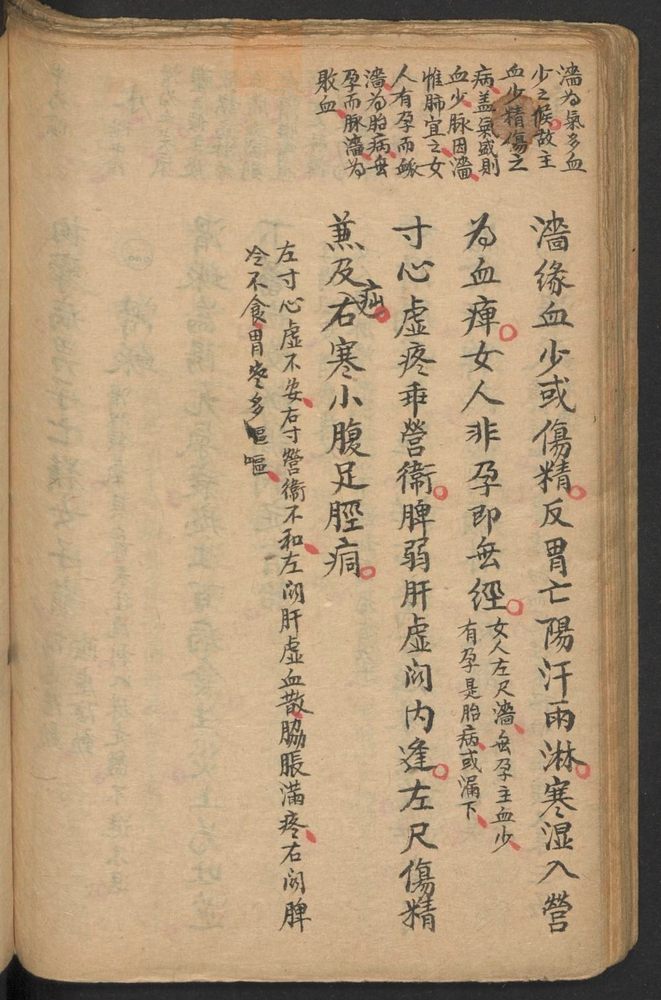 濇為氣多血
少之候故主
血少精傷之
病盖氣盛則
血少脉因濇
惟肺宜之女
人有孕而脉
濇為胎病無
孕而脉濇為
敗血
濇緣血少或傷精反胃亡陽汗雨淋寒湿入營
為血痺女人非孕即無經
女人左尺濇無孕主血少
有孕是胎病或漏下
寸心虛疼乖營衞脾弱肝虛関内逢左尺傷精
兼及疝右寒小腹足脛痌
左寸心虛不安右寸營衞不和左関肝虛血散脇脹滿疼右関脾
冷不食胃疼多嘔